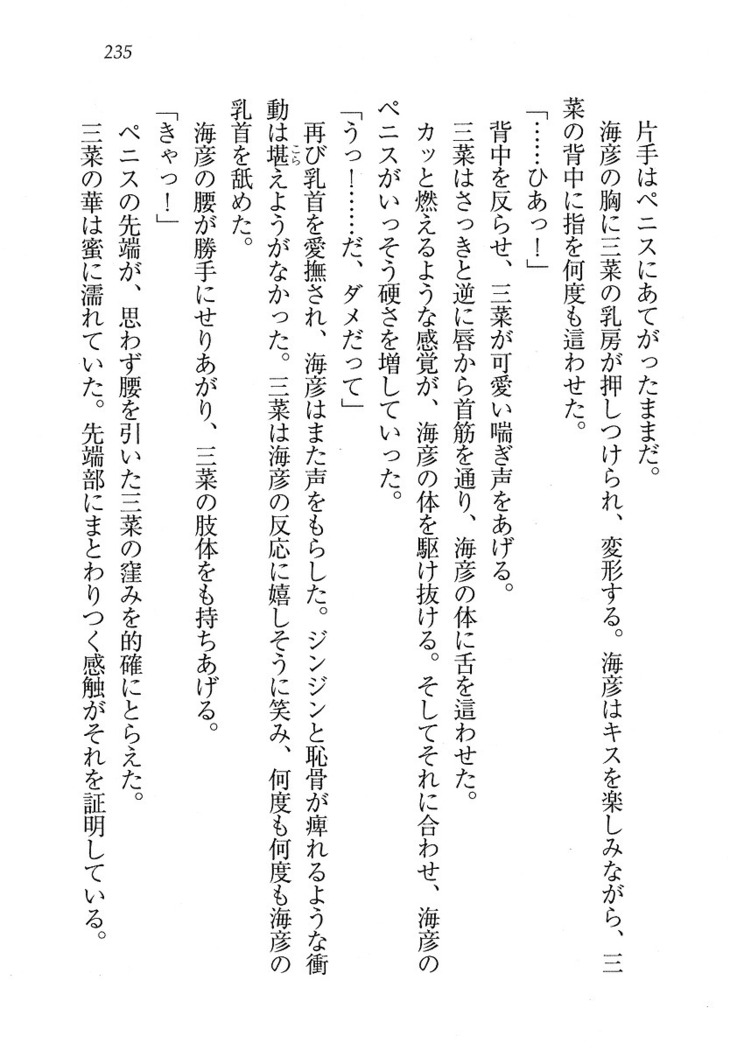 235
片手はペニスにあてがったままだ。
海彦の胸に三菜の乳房が押しつけられ、変形する。海彦はキスを楽しみながら、三
菜の背中に指を何度も這わせた。
「……ひあっ！」
背中を反らせ、三菜が可愛い喘ぎ声をあげる。
三菜はさっきと逆に唇から首筋を通り、海彦の体に舌を這わせた。
カッと燃えるような感覚が、海彦の体を駆け抜ける。そしてそれに合わせ、海彦の
ペニスがいっそう硬さを増していった。
「うっ！……だ、ダメだって」
再び乳首を愛撫され、海彦はまた声をもらした。ジンジンと恥骨が痺れるような衝
動は堪こらえようがなかった。三菜は海彦の反応に嬉しそうに笑み、何度も何度も海彦の
乳首を舐めた。
海彦の腰が勝手にせりあがり、三菜の肢体をも持ちあげる。
「きゃっ！」
ペニスの先端が、思わず腰を引いた三菜の窪みを的確にとらえた。
三菜の華は蜜に濡れていた。先端部にまとわりつく感触がそれを証明している。